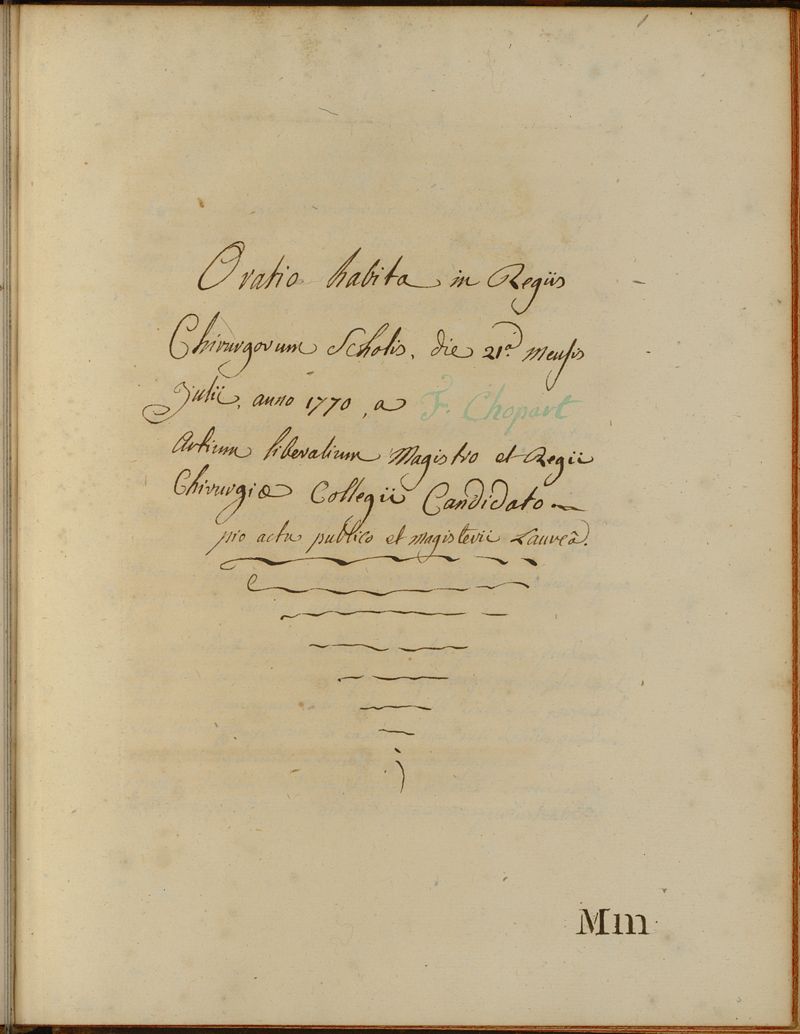 Oratio habita in Regiis
Chirurgorum Scholis, die 21.a mensis
Julii, anno 1770, a F. Chopart
Artium liberalium Magistro et Regii
Chirurgiæ Collegii Candidato
pro actu publico et magisterii Laureâ.
Mm